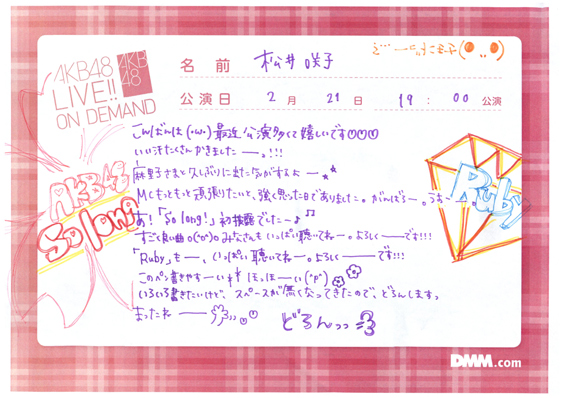 AKB48
LIVE!!
ON DEMAND
AKB
48
名前 松井咲子
公演日 2月 21日 19:00 公演
こんばんは(・ω・)最近公演多くて嬉しいです♡♡♡
いい汗たくさんかきましたーっ!!!
麻里子さまと久しぶりに出た気がするよー
MCもっともっと頑張りたいと、強く思った日でありました。がんばるー。うおー
あ!「So long!」初披露でしたー♪♫
すごく良い曲。(^o^)みなさんも いっぱい聴いてねー。よろしくーです!!!
「Ruby」もー、いっぱい聴いてねー。よろしくーです!!!
このペン書きやすーい ほっほーい(^p^)
いろいろ書きたいけど、スペースが無くなってきたので、どろんしますっ
まったねー
どろんっっ
AKB48
So long
Ruby
DMM.com